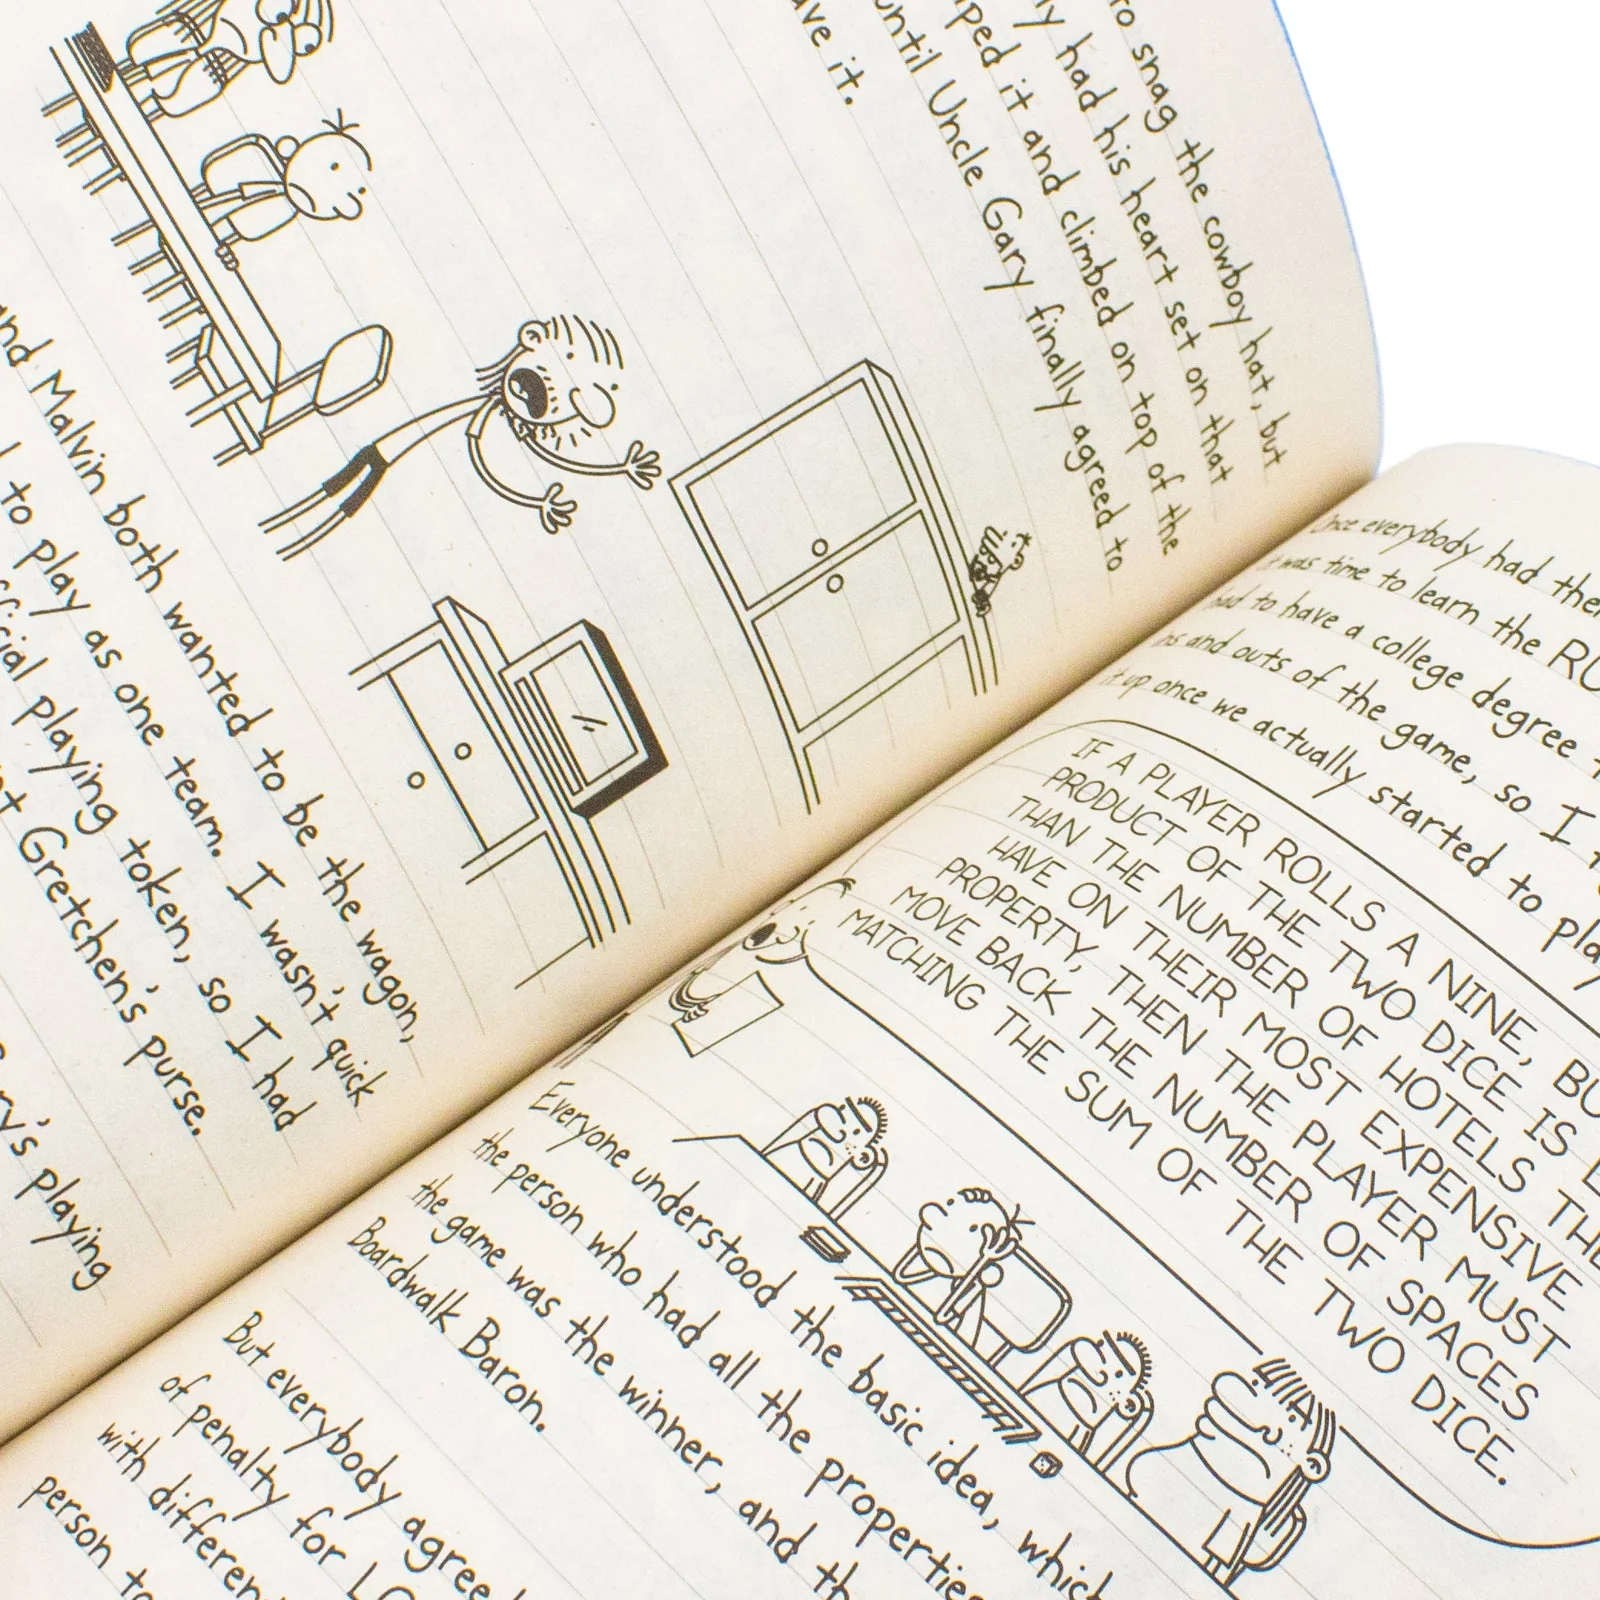 to snag the cowboy hat, but
ly had his heart set on that
ped it and climbed on top of the
until Uncle Gary finally agreed to
ave it.
and Malvin both wanted to be the wagon,
to play as one team. I wasn't quick
official playing token, so I had
Gretchen's purse.
ry's playing
Once everybody had
it was time to learn the RU
had to have a college degree
ns and outs of the game, so I
it up once we actually started to play
IF A PLAYER ROLLS A NINE, BU
PRODUCT OF THE TWO DICE IS L
THAN THE NUMBER OF HOTELS THE
HAVE ON THEIR MOST EXPENSIVE
PROPERTY, THEN THE PLAYER MUST
MOVE BACK THE NUMBER OF SPACES
MATCHING THE SUM OF THE TWO DICE.
Everyone understood the basic idea, which
the person who had all the properties
the game was the winner, and th
Boardwalk Baron.
But everybody agree
of penalty for
with different
person to